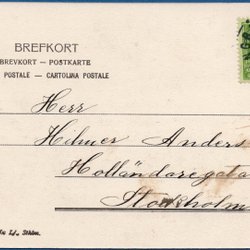 BREFKORT
BREVKORT — POSTKARTE
POSTALE — CARTOLINA POSTALE
Herr
Hilmer Anders
Holländaregata
Stockholm
Lj., Sthlm.